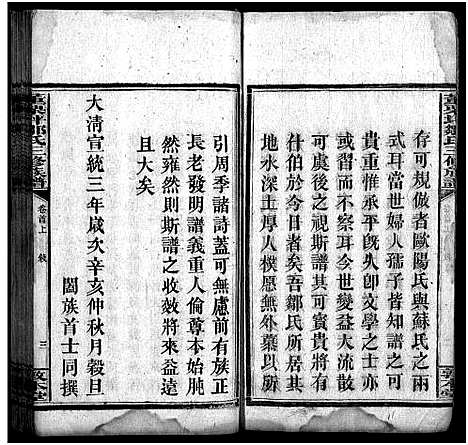 存可規倣者歐陽氏與蘇氏之兩
式耳當世婦人孺子皆知譜之
貴重惟承平旣久卽文學之士
習而不察耳今世變益大流離
可虞後之視斯譜其可寶貴將有
什伯於今日者矣吾鄒氏所居其
地水深土厚人樸愿無外慕以所
引周季諸詩蓋可無慮前有族正
長老發明譜義重人倫尊本始肫
然雍然則斯譜之收效將來益遠
且大矣
大清宣統三年歲次辛亥仲秋月穀旦
闔族首士同撰
鄒氏三修族譜
卷首上
敘
三
敦本堂